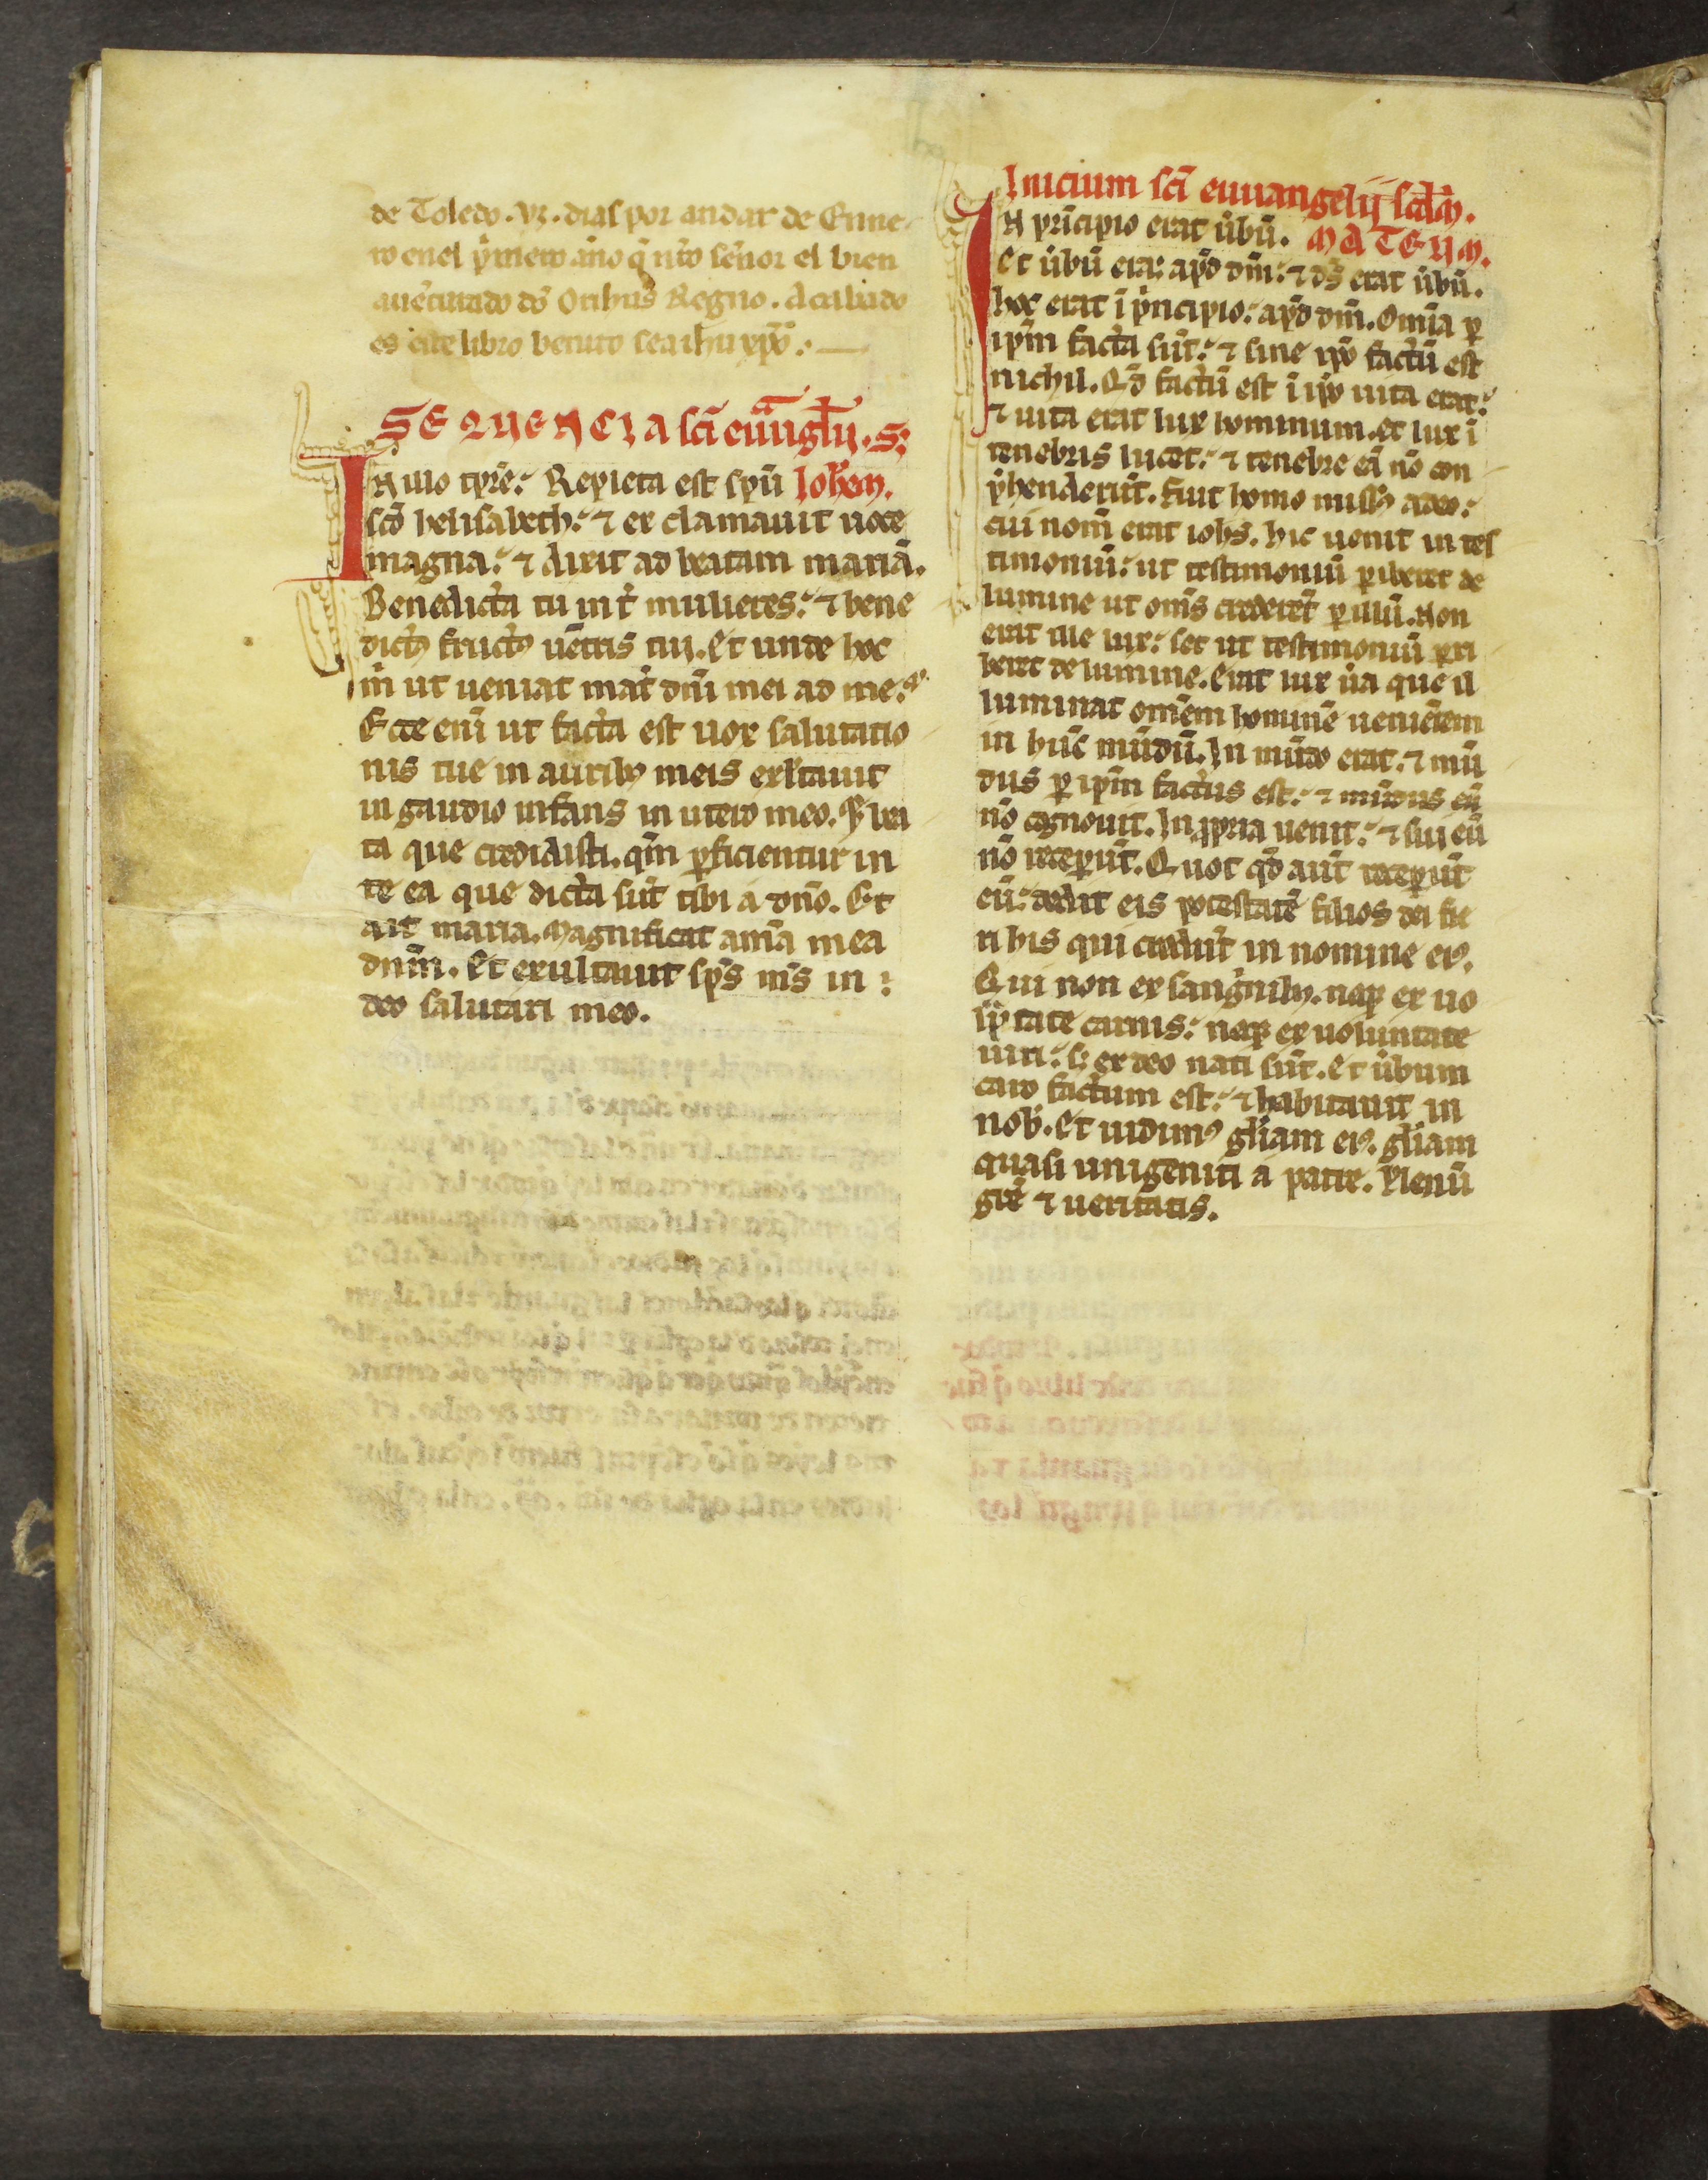 de Toledo. vj. dias por andar de Enne
ro enel p̃mero año q̃ nr̃o señor el bien
auẽturado dõ Orihus Regno. Acabado
es este libro benito sea ihu xp̃o.
SEQUENCIA sc̃i euãgl̃ij. S;
IN illo tp̃re: Repleta est sp̃u Johem.
sc̃o helisabeth: ⁊ ex clamauit uoce
magna: ⁊ dixit ad beatam mariã.
Benedicta tu int̃ mulieres: ⁊ bene
dictꝰ fructꝰ uẽtris tui. Et unde hoc
m̃ ut ueniat mat̃ dñi mei ad me.
Ecce eni ut facta est uox salutatio
nis tue in auribꝫ meis exl̃tauit
in gaudio infans in utero meo. Et bea
ta que credidisti. qm̃ ꝑficientur in
te ea que dicta sũt tibi a dño. Et
ait maria. Magnificat aĩa mea
dnm̃. Et exultauit sp̃s m̃s in :
deo salutari meo.
Inicium sc̃i euuangelij scd̃m.
IN prĩcipio erat ũbũ. MATEUM.
Et ũbũ erat apd̃ dm̃: ⁊ ds̃ erat ũbũ.
hoc erat ĩ p̃ncipio: apd̃ dm̃. Omĩa ꝑ
ip̃m facta sũt: ⁊ sine ip̃o factũ est
nichil. Qd̃ factũ est ĩ ip̃o uita erat:
⁊ uita erat lux hominum. et lux ĩ
tenebris lucet: ⁊ tenebre eã nõ con
p̃henderũt. Fuit homo missꝰ adeo:
cui nom̃ erat iohs̃. hic uenit in tes
timoniũ: ut testimoniũ ꝑiberet de
lumine ut oms̃ crederẽt ꝑ illũ. Non
erat ille lux: set ut testimoniũ ꝑri
beret de lumine. Erat lux ũa que il
luminat omẽm hominẽ ueniẽtem
in hũc mũdũ. In mũdo erat: ⁊ mũ
dus ꝑ ip̃m factus est: ⁊ mũdus eũ
nõ cognouit. In ꝓpria uenit: ⁊ sui eũ
nõ receperũt. Quot qd̃ aut̃ receperũt
eũ: dedit eis potestatẽ filios dei fie
ri his qui credũt in nomine eiꝰ.
Qui non ex sang̃nibꝫ. neqꝫ ex uo
lũtate carnis: neqꝫ ex uoluntate
uiri: sꝫ ex deo nati sũt. Et ũbum
caro factum est: ⁊ habitauit in
nob̃. Et uidimꝰ gl̃iam eiꝰ. gl̃iam
quasi unigeniti a patre. Plenũ
grẽ ⁊ ueritatis.